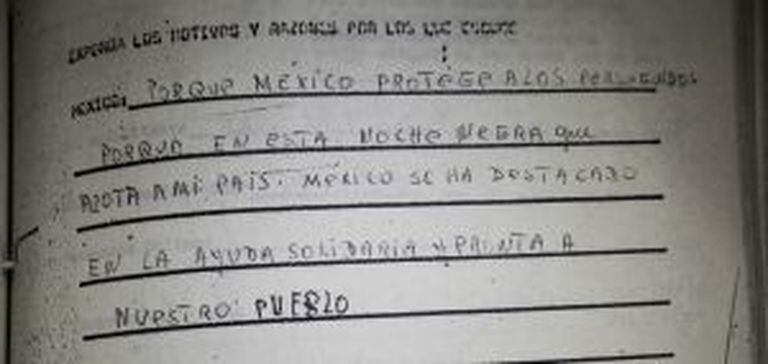 EXPONGA LOS MOTIVOS Y RAZONES POR LOS QUE ESCOGE
MEXICO: PORQUE MÉXICO PROTEGE A LOS PERSEGUIDOS
PORQUE EN ESTA NOCHE NEGRA que
AZOTA A MI PAIS. MÉXICO SE HA DESTACADO
EN LA AYUDA SOLIDARIA Y PRONTA A
NUESTRO PUEBLO